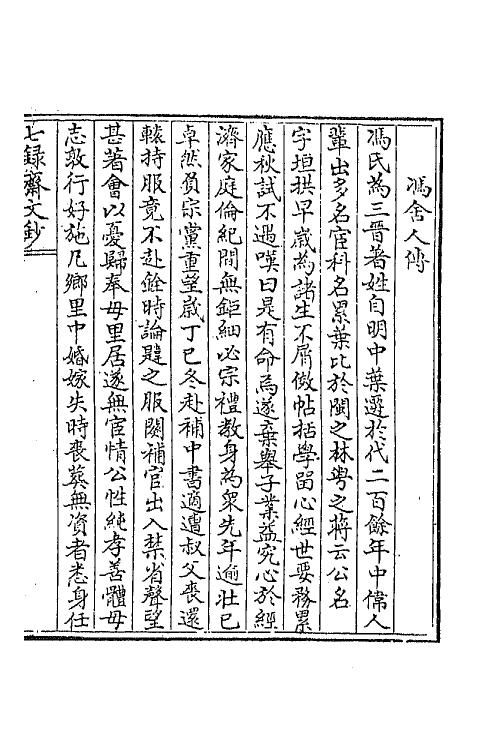 馮舍人傳
馮氏為三晉著姓自明中葉遷於代二百餘年中偉人
輩出多名宦科名累葉比於閩之林粵之蔣云公名
字垣拱早歲為諸生不屑做帖括學留心經世要務累
應秋試不遇嘆曰是有命焉遂棄舉子業益究心於經
濟家庭倫紀間無鉅細必宗禮教身為衆先年逾壯已
卓然負宗黨重望歲丁巳冬赴補中書適遭叔父喪還
轅持服竟不赴銓時論韙之服闋補官出入禁省聲望
甚著會以憂歸奉母里居遂無宦情公性純孝善體母
志敦行好施凡鄉里中婚嫁失時喪葬無資者悉身任
七録齋文鈔